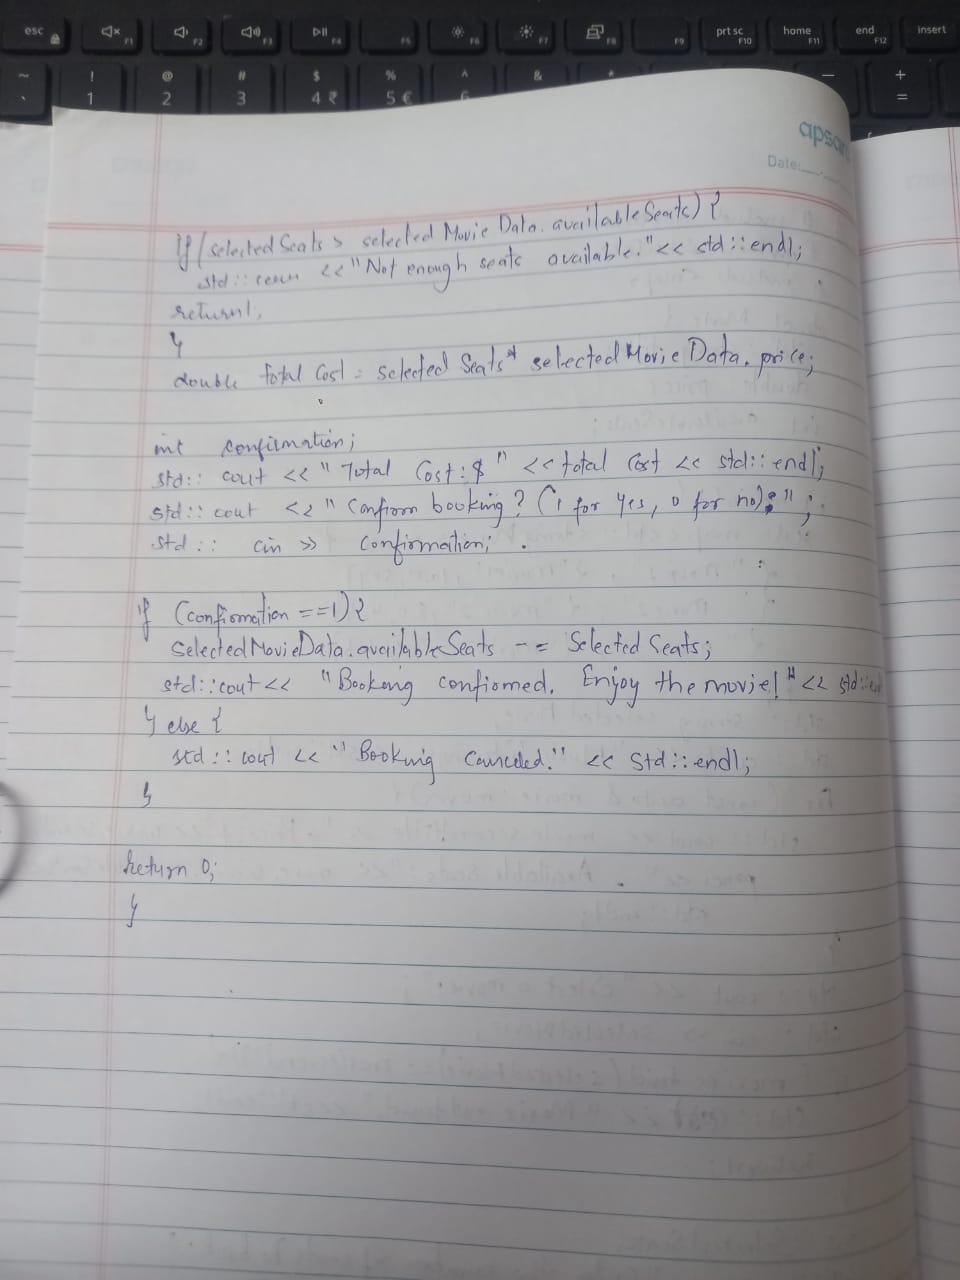 esc F1 F2 F3 F4 F5 F6 F7 F8 F9 prt sc F10 home F11 end F12 insert
~ ` ! 1 @ 2 # 3 $ 4 ₹ % 5 € ^ 6 & * _ + =
apsar
Date:
If (selectedSeats > selected Movie Data. availableSeats) {
std :: << "Not enough seats available." << std :: endl;
return1,
}
double total Cost = selected Seats* selectedMovie Data. price;
int confirmation;
std :: cout << " Total Cost : $ " << total Cost << std :: endl;
std :: cout << " Confirm booking? (1 for Yes, 0 for no): " ;
std :: cin >> confirmation;
if (confirmation ==1) {
SelectedMovieData.availableSeats -= Selected Seats;
std::cout << "Booking confirmed. Enjoy the movie!" << std::end
} else {
std :: cout << " Booking Canceled." << std::endl;
}
return 0;
}